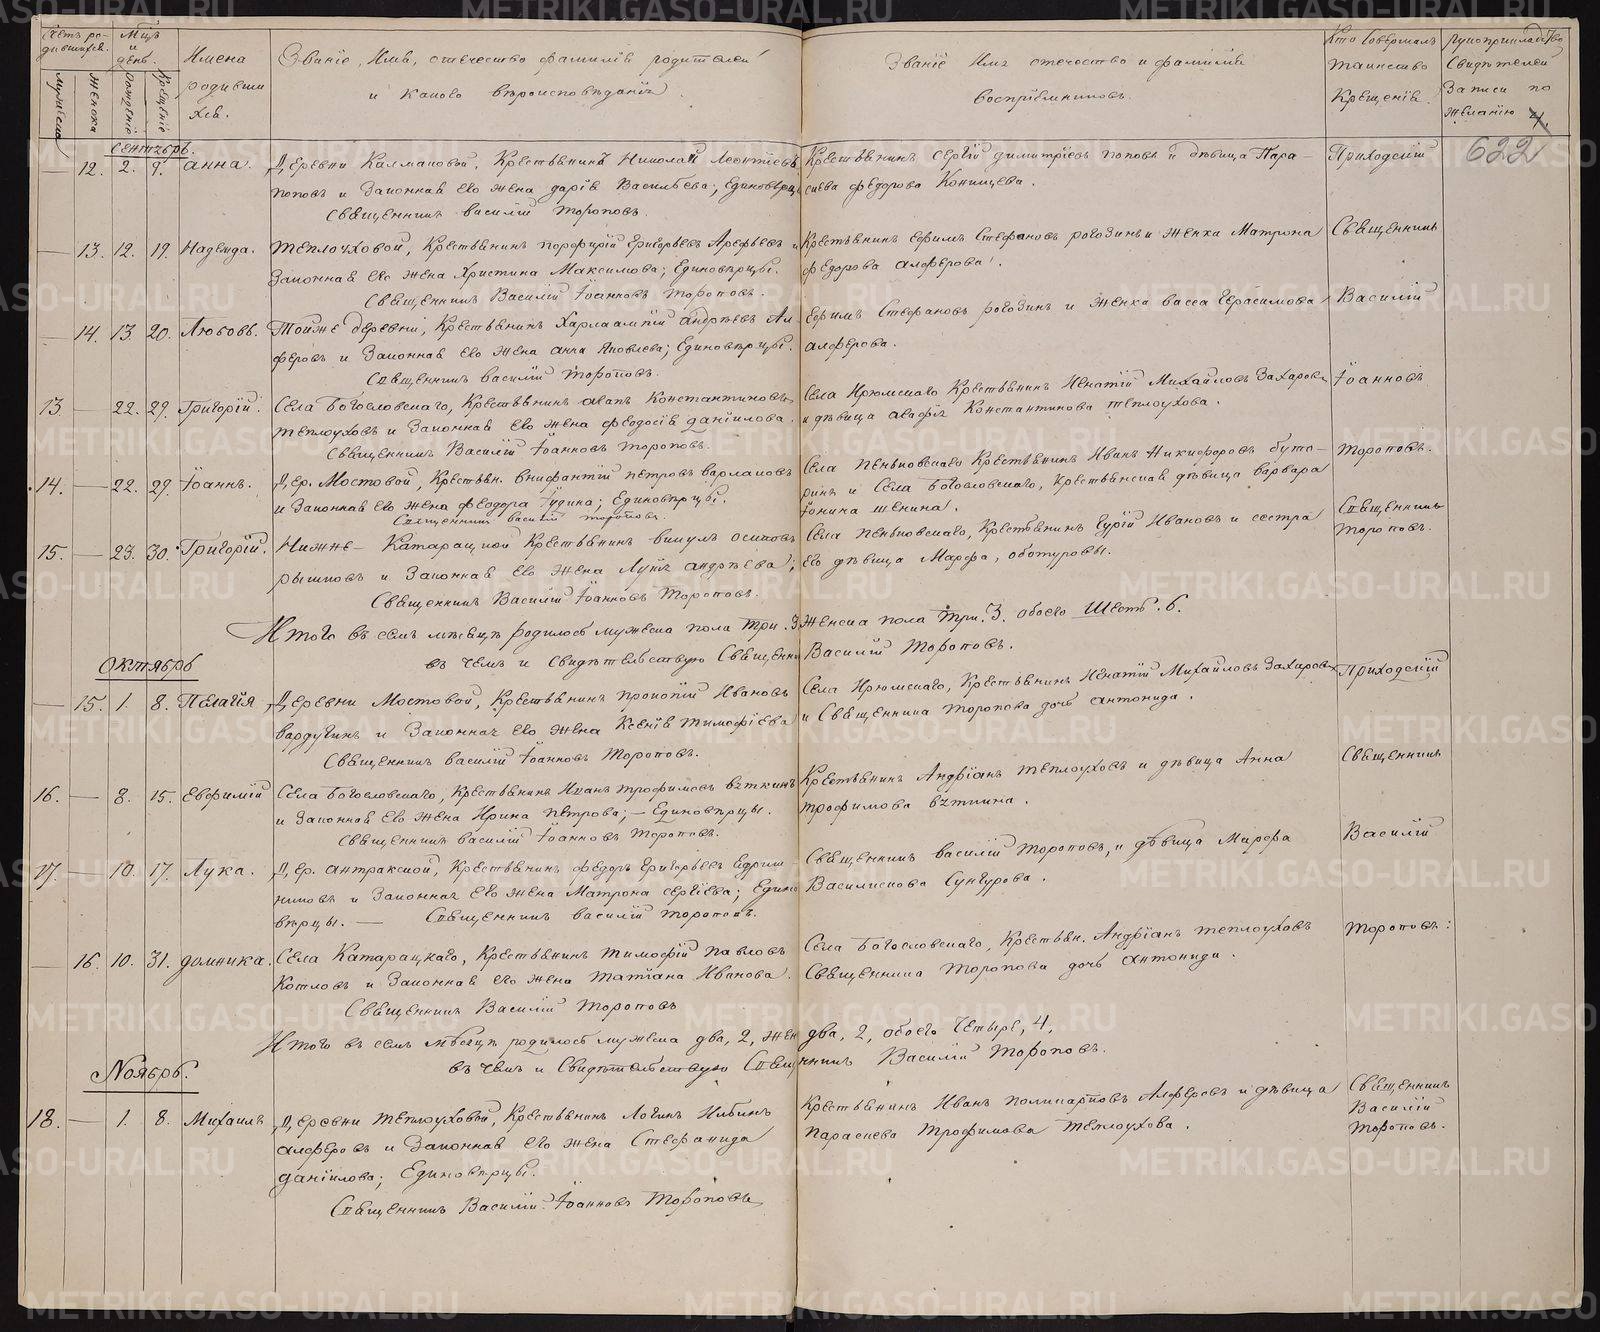 Счетъ ро-
дившихся.
Мужеска
Женска
Мѣць
и
день.
Рожденіе
Крещеніе
Имена
родивши
хся.
Званіе, Имя, отечество фамилія родителей
и какого вѣроисповѣданія.
Званіе Имя отечество и фамилія
воспріемниковъ.
Кто совершалъ
таинство
Крещенія.
Рукоприкладство
Свидѣтелей
Записи по
желанію
4.
622
Сентябрь.
12. 2. 9. Анна. Деревни Калмаковой, Крестьянинъ Николай Леонтіевъ
Поповъ и Законная его жена Дарія Васильева; Единовѣрцы
Священникъ Василій Тороповъ.
Крестьянинъ Сергій Димитріевъ Поповъ и дѣвица Пара-
скева Федорова Конищева.
Приходскій
13. 12. 19. Надежда. Теплоуховой, Крестьянинъ Порфирій Григорьевъ Арефьевъ и
Законная его жена Христина Максимова; Единовѣрцы.
Священникъ Василій Іоанновъ Тороповъ.
Крестьянинъ Ефимъ Стефановъ Рогозинъ и женка Матрона
Федорова Алферова.
Священникъ
14. 13. 20. Любовь. Тойже деревни, Крестьянинъ Харлаампій Андреевъ Ал-
феровъ и Законная его жена Анна Яковлева; Единовѣрцы.
Священникъ Василій Тороповъ.
Ефимъ Стефановъ Рогозинъ и женка Васса Герасимова
Алферова.
Василій
13 22. 29. Григорій. Села Богословскаго, Крестьянинъ Константиновъ
Теплоуховъ и Законная его жена Феодосія Даніилова.
Священникъ Василій Іоанновъ Тороповъ.
Села Ирюмскаго Крестьянинъ Игнатій Михайловъ Захаровъ
и дѣвица Агафія Константинова Теплоухова.
Іоанновъ
14. 22. 29. Іоаннъ. Дер. Мостовой, Крестьян. Внифантій Петровъ Варлаковъ
и Законная его жена Феодора Іудина; Единовѣрцы.
Священникъ Василій Тороповъ.
Села Пеньковскаго Крестьянинъ Иванъ Никифоровъ Буто-
ринъ и Села Богословскаго, Крестьянская дѣвица Варвара
Іонина
Тороповъ.
15. 23. 30. Григорій. Нижне-Катарацкой Крестьянинъ Викулъ Осиповъ
и Законная его жена Андрѣева;
Священникъ Василій Іоанновъ Тороповъ.
Села Пеньковскаго, Крестьянинъ Гурій Ивановъ и сестра
его дѣвица Марфа,
Священникъ
Тороповъ.
Итого въ семъ мѣсяцѣ родилось мужеска пола три. 3. Женска пола три. 3. обоего Шесть. 6.
въ чемъ и Свидѣтельствую Священни Василій Тороповъ.
Октябрь
15. 1. 8. Пелагія Деревни Мостовой, Крестьянинъ Прокопій Ивановъ
и Законная его жена Ксенія Тимофіева
Священникъ Василій Іоанновъ Тороповъ.
Села Ирюмскаго, Крестьянинъ Игнатій Михайловъ Захаровъ
и Священника Торопова дочь Антонида.
Приходскій
16. 8. 15. Евфимій Села Богословскаго, Крестьянинъ Иванъ Трофимовъ Вяткинъ
и Законная его жена Ирина Петрова; — Единовѣрцы.
Священникъ Василій Іоанновъ Тороповъ.
Крестьянинъ Андріанъ Теплоуховъ и дѣвица Анна
Трофимова Вяткина.
Священникъ
17. 10. 17. Лука. Дер. Антракской, Крестьянинъ Федоръ Григорьевъ
и Законная его жена Матрона Сергіева; Едино
вѣрцы. — Священникъ Василій Тороповъ.
Священникъ Василій Тороповъ, и дѣвица Марфа
Василискова Сунгурова.
Василій
16. 10. 31. Домника. Села Катарацкаго, Крестьянинъ Тимофій Павловъ
Котловъ и Законная его жена Татіана Иванова.
Священникъ Василій Тороповъ
Села Богословскаго, Крестьян. Андріанъ Теплоуховъ
Священника Торопова дочь Антонида.
Тороповъ:
Итого въ семъ мѣсяцѣ родилось мужеска два, 2, жен два, 2, обоего Четыре, 4,
въ чемъ и Свидѣтельствую Священникъ Василій Тороповъ.
Ноябрь.
18. 1. 8. Михаилъ Деревни Теплоуховой, Крестьянинъ Логинъ Ильинъ
Алферовъ и Законная его жена Стефанида
Даніилова; Единовѣрцы.
Священникъ Василій Іоанновъ Тороповъ
Крестьянинъ Иванъ Поликарповъ Алферовъ и дѣвица
Параскева Трофимова Теплоухова.
Священникъ
Василій
Тороповъ.
METRIKI.GASO-URAL.RU